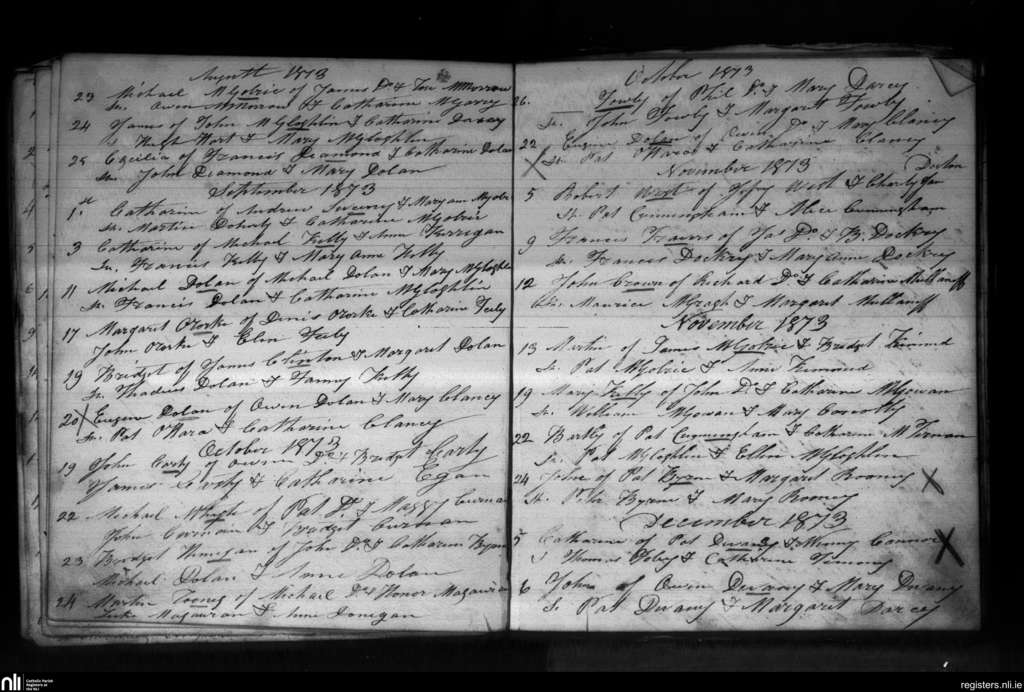 August 1873
23 Michael McGolric of James Do & McMorrow
Sr. Owen McMorrow & Catharine McGarry
24 James of John McGloghlin & Catharine Darcy
Sr Hugh Hart & Mary McGloghlin
25 Cecilia of Francis Diamond & Catharin Dolan
Sr. John Diamond & Mary Dolan
September 1873
1st Catharin of Andrew Sweeny & Maryan
Sr. Martin Doherty & Catharine McGolric
3 Catharine of Michael Kelly & Anne Kerrigan
Sr. Francis Kelly & Mary Anne Kelly
11 Michael Dolan of Michael Dolan & Mary McGloghlin
Sr. Francis Dolan & Catharine McGloghlin
17 Margaret ORorke of Denis ORorke & Catharine Feely
John ORorke & Elen Feely
19 Bridget of James Clinton & Margaret Dolan
Sr. Thadeus Dolan & Fanny Kelly
20 X Eugene Dolan of Owen Dolan & Mary Clancy
Sr. Pat OHara & Catharine Clancy
October 1873
19 John Carty of Owen Do & Bridget Carty
James & Catharine Egan
22 Michael of Pat Do & Maggy Curnan
John Curnan & Bridget Curnan
23 Bridget of John Do & Catharin Byrne
Michael Dolan & Anne Dolan
24 Martin of Michael Do & Honor Magauran
Luke Magauran & Anne Donegan
October 1873
26. Fowly of Phil Do & Mary Darcy
Sr. John Fowly & Margaret Fowly
22 Eugene Dolan of Owen Do & Mary Clancy
X Sr. Pat OHara & Catharine Clancy
November 1873
5 Robert West of West & Charlotte
Sr. Pat Cunningham & Alice Cunningham
9 Francis of Jas Do & B. Dockry
Sr. Francis Dockry & Mary Anne Dockry
12 John Crown of Richard Do & Catharine
Maurice & Margaret
November 1873
13 Martin of James McGolric & Bridget
Sr. Pat McGolric & Anne
19 Mary Kelly of John Do & Catharine McGowan
Sr. William McGowan & Mary Connolly
22 Bertly of Pat Cunningham & Catharine McTernan
Sr. Pat McGloghlin & Ellen McGloghlin
24 John of Pat Byrne & Margaret Rooney X
Sr. Peter Byrne & Mary Rooney
December 1873
5 Catharine of Pat Devany & Connor X
S Thomas Foley & Catharine
6 John of Owen Devany & Mary Devany
Sr. Pat Devany & Margaret Darcy
nli
Catholic Parish
Registers at
the NLI
registers.nli.ie